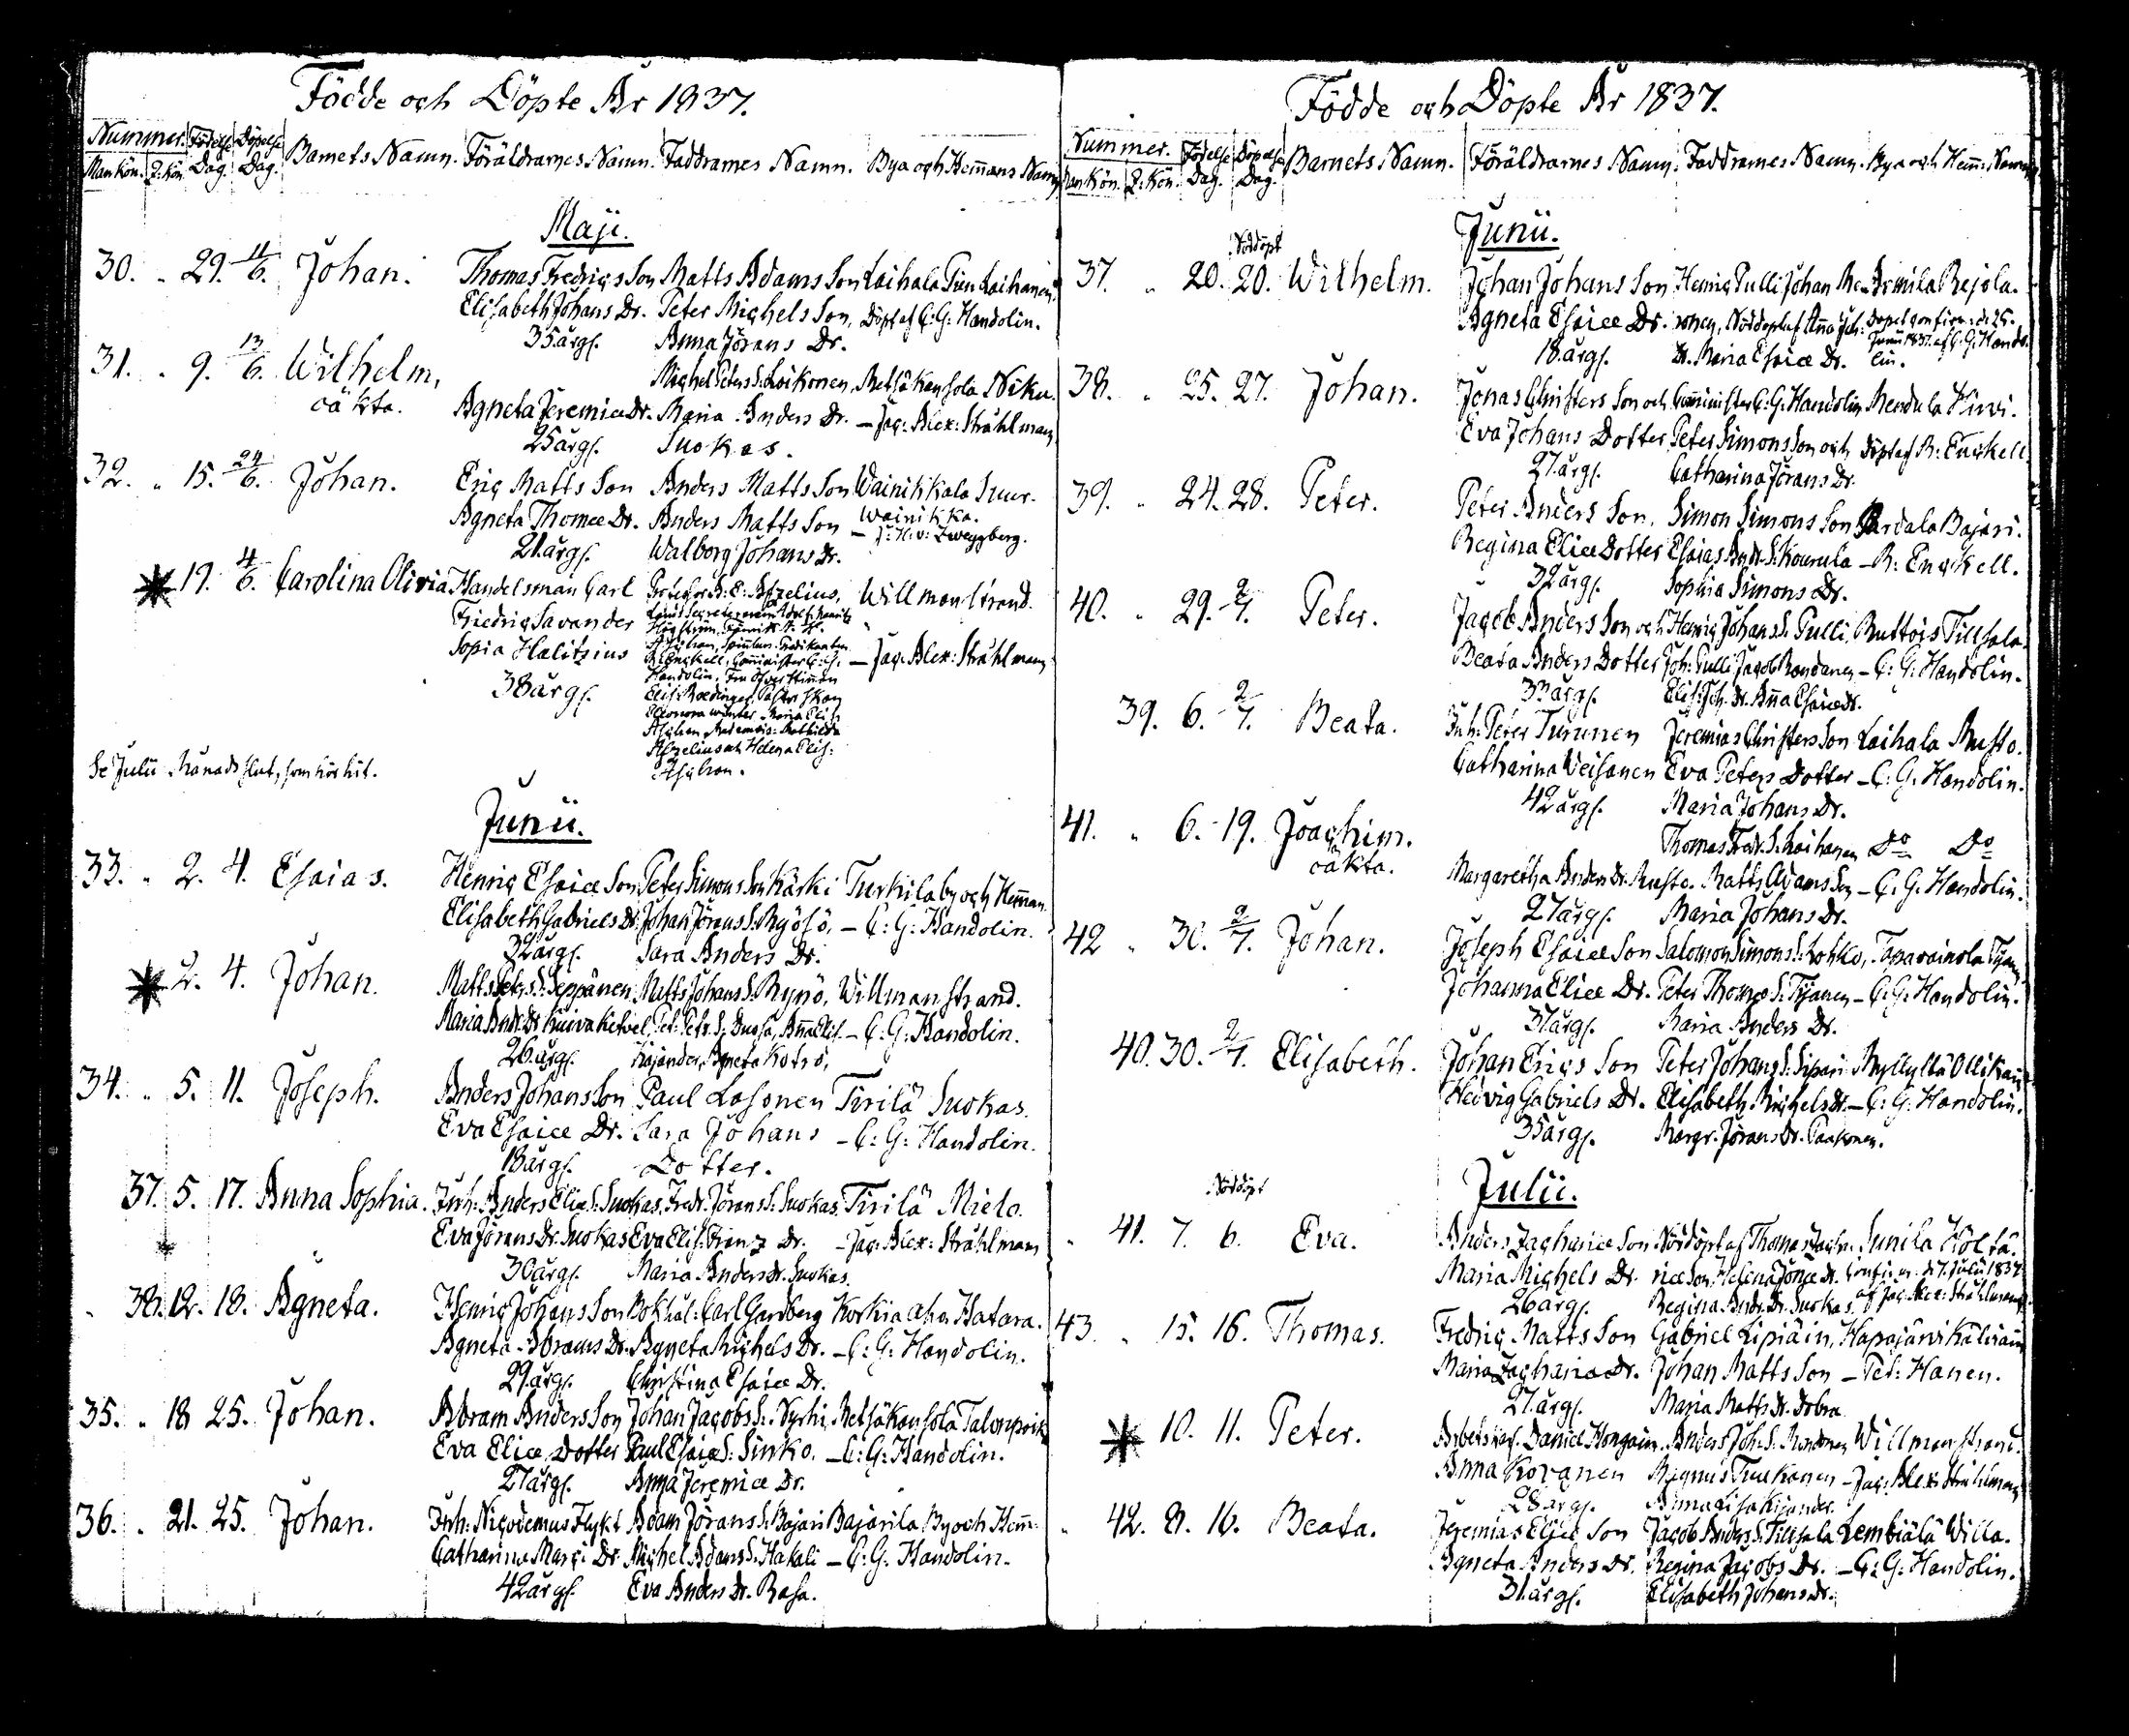 Födde och Döpte År 1837.
Nummer. Födelse Döpelse Barnets Namn. Föräldrarnes Namn. Faddrarnes Namn. Bya och Hem̄ans Namn
Mankön. Q:kön Dag. Dag.
Maji.
30. " 29. 11/6. Johan. Thomas Fredrics Son Matts Adams Son Laihala Pien Laihanen
Elisabeth Johans Dr. Peter Michels Son, Döpt af C: G: Handolin.
35 årg. Anna Jörans Dr.
31. " 9. 13/6. Wilhelm, Michel Peters S: Loikonen, Metsäkansola Niku.
oäkta. Agneta Jeremiæ Dr. Maria Anders Dr. – Jac: Alex: Stråhlman
25 årg. Suokas.
32. " 15. 24/6. Johan. Eric Matts Son Anders Matts Son Wainikkala Suur-
Wainikka.
Agneta Thomæ Dr. Anders Matts Son
21. årg. Walborg Johans Dr.
19. 4/6. Carolina Olivia Handelsman Carl A: E: Afzelius, Willmanstrand.
Friedric Savander
Sopia Helitzius – Jac: Alex: Stråhlman
38 årg.
Se Julii Månads slut, som hör hit.
Junii.
33. " 2. 4. Esaias. Henric Esaiæ Son Peter Simons Son Kärki Turkila by och Hem̄an.
Elisabeth Gabriels Dr. Johan Jörans S: Ryösö, – C: G: Handolin.
32 årg. Sara Anders Dr.
2. 4. Johan. Matts Petr. S: Seppänen Matts Johans S: Rynö, Willmanstrand.
Maria Andr. Dr – C: G: Handolin.
26. årg. Agneta Kotro,
34. " 5. 11. Joseph. Anders Johans Son Paul Lasonen Tirilä Suokas.
Eva Esaiæ Dr. Sara Johans – C: G: Handolin.
18 årg. Dotter.
37. 5. 17. Anna Sophia. Inh: Anders Eliæ S: Suokas. Fredr. Jörans S: Suokas. Tirilä Mielo.
Eva Jörans Dr. Suokas Eva Elis: Frenz Dr. – Jac: Alex: Strahlman
30 årg. Maria Anders Dr. Suokas.
" 38. 12. 18. Agneta. Henric Johans Son Bokhål: Carl Gardberg Korkia aho Hatara.
Agneta Abrams Dr. Agneta Michels Dr. – C: G: Handolin.
29. årg. Christina Esaiæ Dr.
35. " 18 25. Johan. Abram Anders Son Johan Jacobs S: Nyrhi, Metsäkansola Talonpoik
Eva Eliæ Dotter Paul Esaiæ S: Sinko. – C: G: Handolin.
27 årg. Anna Jeremiæ Dr.
36. " 21. 25. Johan. Inh: Nicodemus Flykt Adam Jörans S: Bajari Bajarila By och Hem̄:
Catharina Marci Dr. Michel Adams S: Hakali – C: G: Handolin.
42 årg. Eva Anders Dr. Rasa.
Födde och Döpte År 1837.
Nummer. Födelse Döpelse Barnets Namn. Föräldrarnes Namn. Faddrarnes Namn. Bya och Hem̄: Namn
Mankön. Q:kön. Dag. Dag.
Junii.
Nöddöpt
37. " 20. 20. Wilhelm. Johan Johans Son Henric Pulli Johan Ar mila Rejola.
Agneta Esaiæ Dr. nonen, Nöddöpt af Anna Joh: Dopet confirm: d: 25.
Junii 1837. af C. G. Hando-
18. årg. Dr. Maria Esaiæ Dr. lin.
38. " 25. 27. Johan. Jonas Christers Son och Comminister C: G: Handolin Mendula Hirvi.
Eva Johans Dotter Peter Simons Son och Döpt af R: Enckell.
27. årg. Catharina Jörans Dr.
39. " 24. 28. Peter. Peter Anders Son, Simon Simons Son Pardala Bajari.
Regina Eliæ Dotter Esaias Andr. S: Kourula – R: Enckell.
32 årg. Sophia Simons Dr.
40. " 29. 2/7. Peter. Jacob Anders Son och Henric Johans S: Pulli, Ruttois Tillsala.
Beata Anders Dotter Joh: Pulli Jacob Rondanen – C: G: Handolin.
33 årg. Elis: Joh. Dr. Anna Esaiæ Dr.
39. 6. 2/7. Beata. Inh: Peter Turunen Jeremias Christers Son Laihala Musto.
Catharina Veisanen Eva Peters Dotter – C: G: Handolin.
42 årg. Maria Johans Dr.
41. " 6. 19. Joachim. Thomas Fredr. S: Laihanen Do Do
oäkta. Margaretha Anders Dr. Musto. Matts Adams Son – C: G: Handolin.
27 årg. Maria Johans Dr.
42 " 30. 2/7. Johan. Joseph Esaiæ Son Salomon Simons S: Lohko, Tapavainola
Johanna Eliæ Dr. Peter Thomæ S: Tyjanen – C: G: Handolin.
37 årg. Maria Anders Dr.
40. 30. 2/7. Elisabeth. Johan Erics Son Peter Johans S: Sipari Myllylä Ollikain
Hedvig Gabriels Dr. Elisabeth Michels Dr. – C: G: Handolin.
35 årg. Margr. Jörans Dr. Paakonen.
Julii.
Nöddöpt
" 41. 7. 6. Eva. Anders Zachariæ Son Nöddöpt af Thomas Zacha- Sunila Hölttä.
Maria Michels Dr. riæ Son, Helena Jonæ Dr. confirm: d: 7. Julii 1837
26 årg. Regina Andr. Dr. Suokas. af Jac: Alex: Strahlman
43. " 15. 16. Thomas. Fredric Matts Son Gabriel Lipiäin, Hapajärvi Kälviäin
Maria Zachariæ Dr. Johan Matts Son – Pet: Hanen.
27. årg. Maria Matts Dr. Dobra
10. 11. Peter. Arbetskarl Daniel Hongain. Anders Joh: S. Willmanstrand.
Anna Kovanen Magnus Tuukanen – Jac: Alex: Strahlman
28 årg. Anna Lisa Kijander.
" 42. 8. 16. Beata. Jeremias Eliæ Son Jacob Anders S: Tillsala Lembiälä Willa.
Agneta Anders Dr. Regina Jacobs Dr. – C: G: Handolin.
31. årg. Elisabeth Johans Dr.